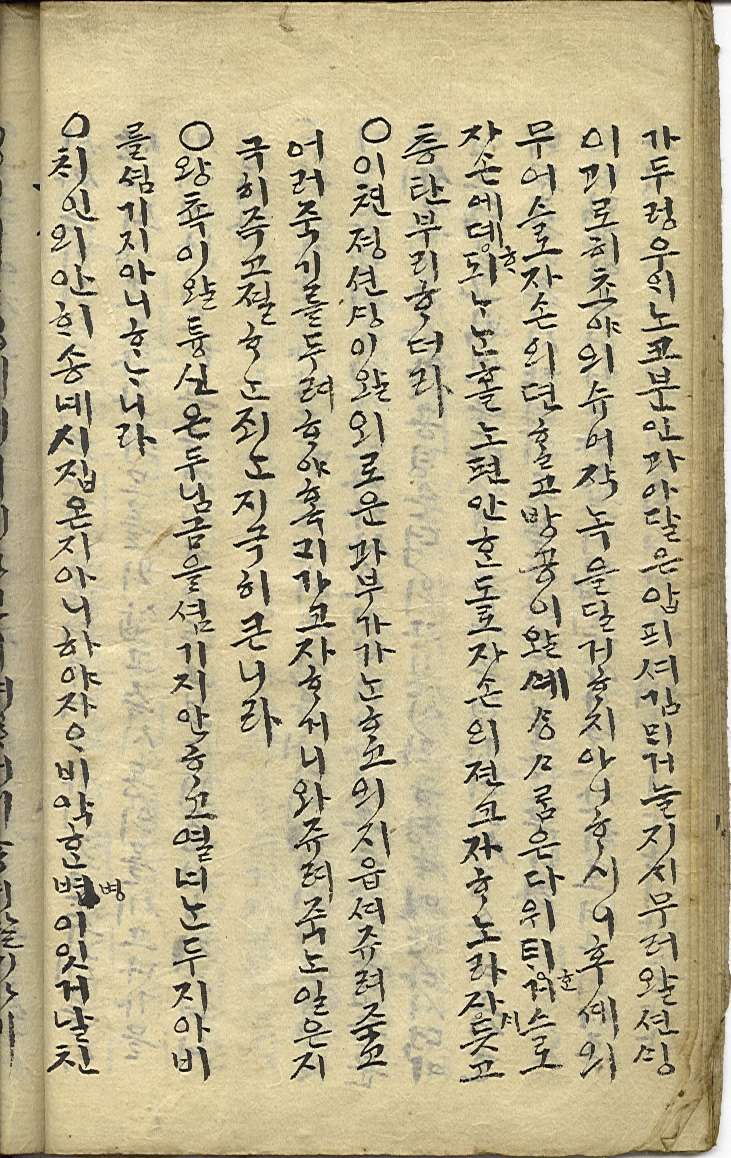 가두렁우의노코분안과아달은압픠셔김믜거늘지시무러왈션ᄉᆡᆼ
이괴로히쵸야의슈머작녹을달거ᄒᆞ지아니ᄒᆞ시니후셰의
무어슬로자손의뎐ᄒᆞᆯ고방공이왈셰ᄉᆞᆼᄉᆞᄅᆞᆷ은다위ᄐᆡ거슬로
자손에데되ᄂᆞᄂᆞᆫ홀노편안ᄒᆞᆫ도로자손의젼코자ᄒᆞ노라ᄌᆞᆺ듯고
층탄부리ᄒᆞ더라
○이쳔졍션ᄉᆡᆼ이왈외로운과부가가ᄂᆞᆫᄒᆞ고의지읍셔쥬려쥭고
어러죽기를두려ᄒᆞ야혹ᄀᆡ가코자ᄒᆞ거니와쥬려죽ᄂᆞᆫ일은지
극히죽고졀ᄒᆞᄂᆞᆫ죄ᄂᆞᆫ지극히큰니라
○왕쵹이왈튱신은두님금을셤기지안ᄒᆞ고열녀ᄂᆞᆫ두지아비
를셤기지아니ᄒᆞᆫ니라
○치인의안희송녜시집온지아니하야장ᄋᆞ비악ᄒᆞᆫ병이잇거날친